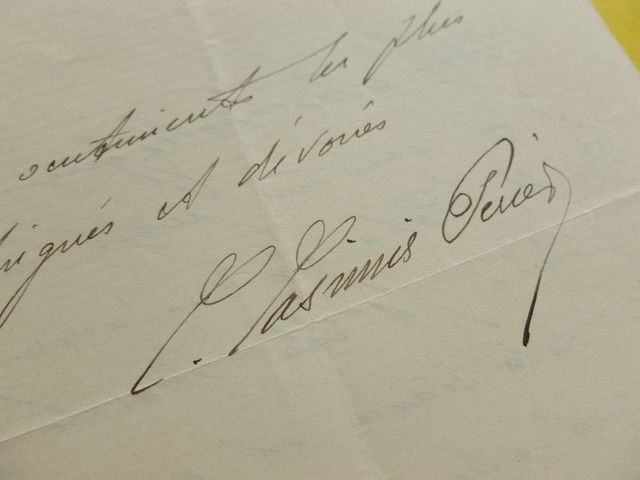 sentiments les plus
et dévoués
C. Casimir Perier